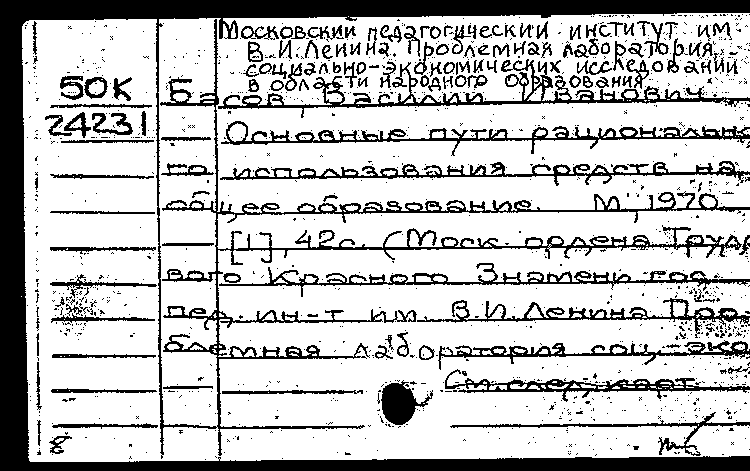 Московский педагогический институт им
В.И.Ленина. Проблемная лаборатория
социально-экономических исследований
в области народного образования
50К
24231
Басов, Василий Иванович
Основные пути рационально
го использования средств на
общее образование. М., 1970
[1], 42с. (Моск. ордена Трудо
вого Красного Знамени гос.
пед. ин-т им. В.И.Ленина Про-
блемная лаборатория соц.-эко
См.след.карт.
8